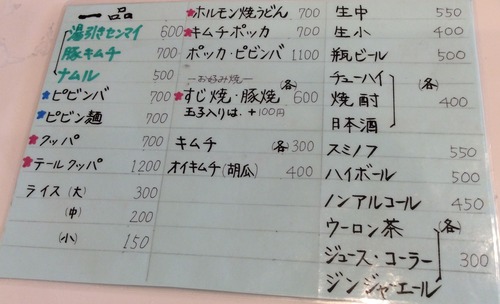 一品
湯引きセンマイ 600
豚キムチ 700
ナムル 500
★ピビンバ 700
★ピビン麺 700
★クッパ 700
★テールクッパ 1200
ライス (大) 300
(中) 200
(小) 150
★ホルモン焼うどん 700
★キムチポッカ 700
ポッカ・ピビンバ 1100
—お好み焼—
★すじ焼・豚焼 (各) 600
玉子入りは、+100円
キムチ (各) 300
オイキムチ (胡瓜) 400
生中 550
生小 400
瓶ビール 500
チューハイ (各)
焼酎 400
日本酒
スミノフ 550
ハイボール 500
ノンアルコール 450
ウーロン茶 (各)
ジュース・コーラー 300
ジンジャーエール